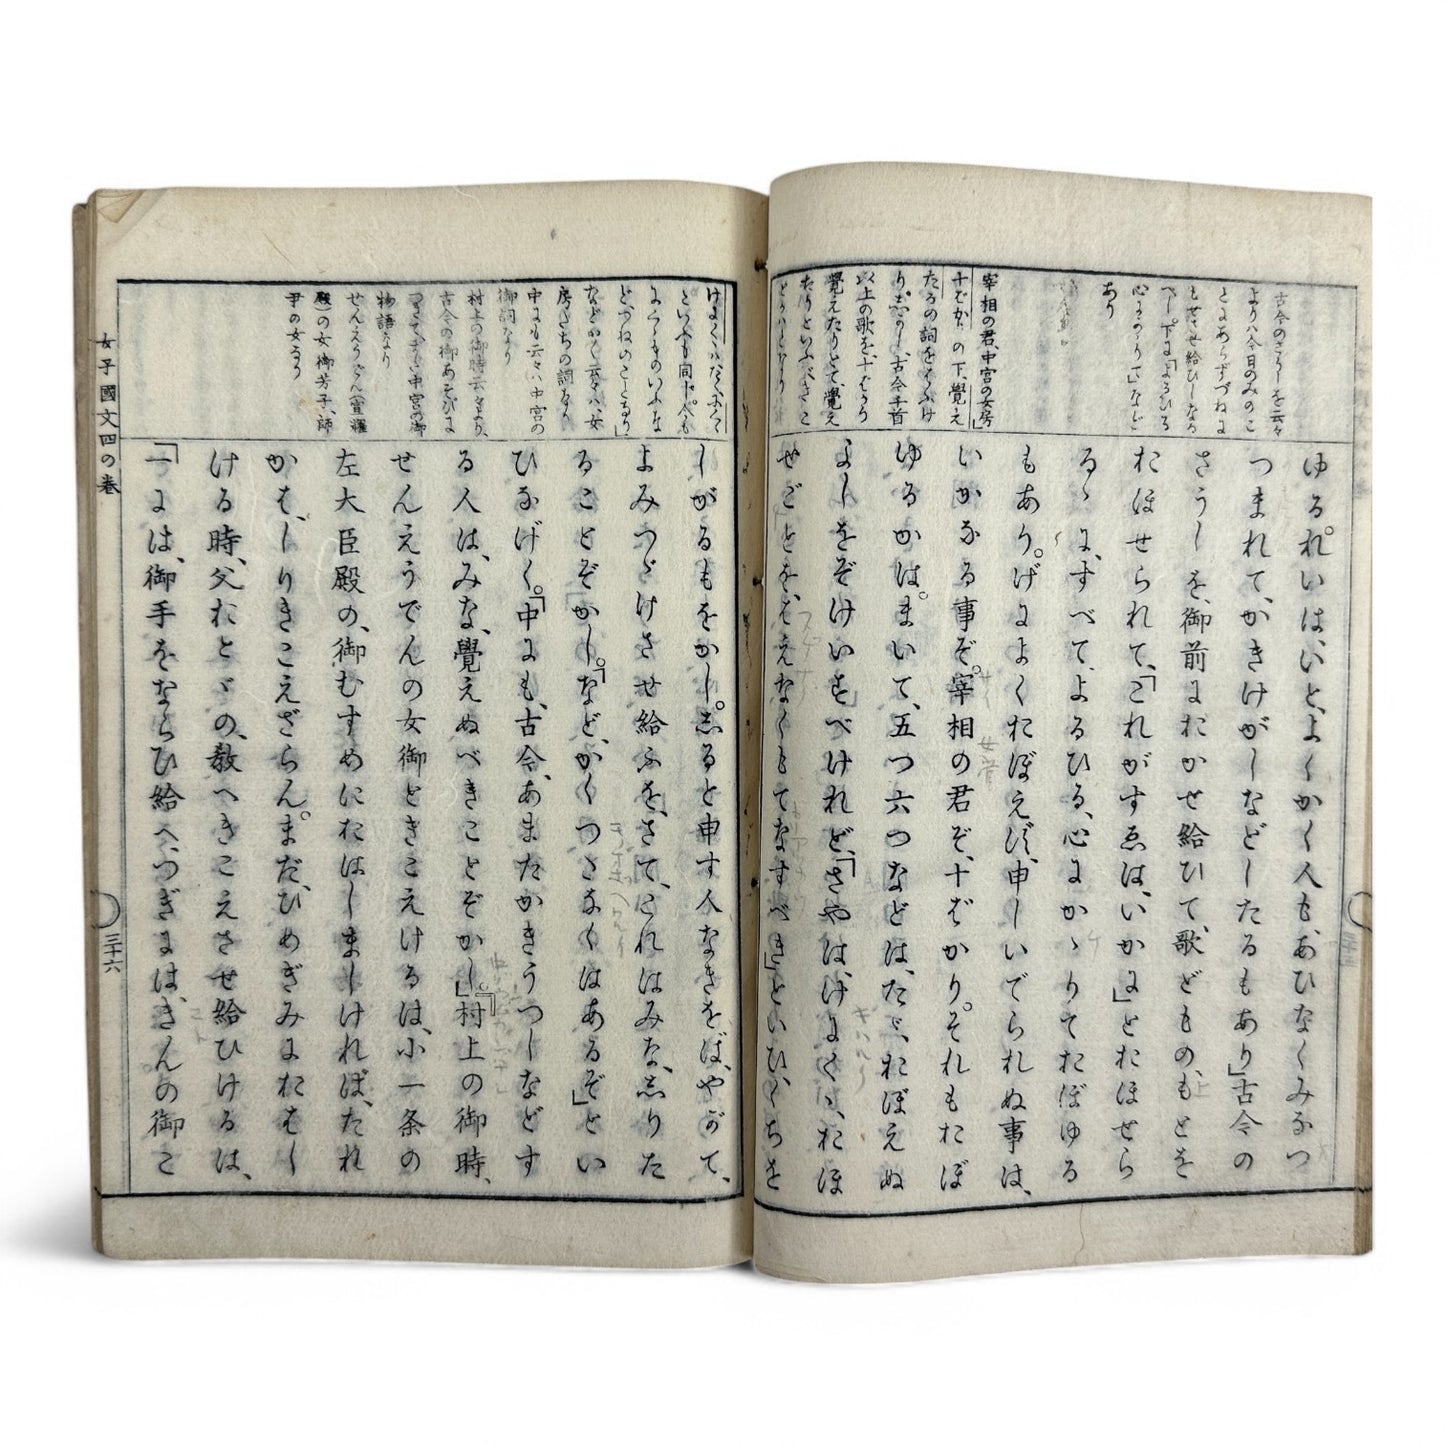 古今のさうしを云々
より八今日のみのこ
とにあらずつねに
もせさせ給ひしなる
べし。下に「よるひる
心にかゝりて」など
あり
宰相の君、中宮の女房」
十ばかりの下、覺え
たるの詞をはぶけ
り。志かし、古今千首
以上の歌を、十ばかり
覺えたりとて、覺え
たりといふべきこ
ゆる。れいは、いとよくかく人も、あひなくみなつ
つまれて、かきけがしなどしたるもあり」古今の
さうしを、御前におかせ給ひて、歌どものもとを
おほせられて、「これがすゑは、いかに」とおほせら
るゝに、すべて、よるひる、心にかゝりておぼゆる
もあり。げによくおぼえず、申しいでられぬ事は、
いかなる事ぞ。宰相の君ぞ、十ばかり。それもおぼ
ゆるかは。まいて、五つ六つなどは、たゞ、おぼえぬ
よしをぞけいすべけれど、「さやは、けにくゝ、おほ
せごとを、はえなくもてなすべき」といひ、くちを
といへるも同じ、人も
ど、つねのことなり」
などかく云々ハ、女
房たちの詞なり
中にも云々ハ中宮の
御詞なり
村上の御時云々より、
古今の御あそびに
物語なり
せんえうでん(宣耀
殿)の女御芳子、師
尹の女なり
しがるもをかし。志ると申す人なきをば、やがて、
よみつゞけさせ給ふを、さて、これはみな、志りた
ることぞかし。「などかくつさなくはあるぞ」とい
ひなげく。「中にも、古今、あまたかきうつしなどす
る人は、みな、覺えぬべきことぞかし。」「村上の御時、
せんえうでんの女御ときこえけるは、小一条の
左大臣殿の、御むすめにおはしましければ、たれ
かは、しりきこえざらん。まだ、ひめぎみにおはし
ける時、父おとゞの、教へきこえさせ給ひけるは、
「一には、御手をならひ給へ、つぎには、きんの御こ
女子國文四の卷
三十六